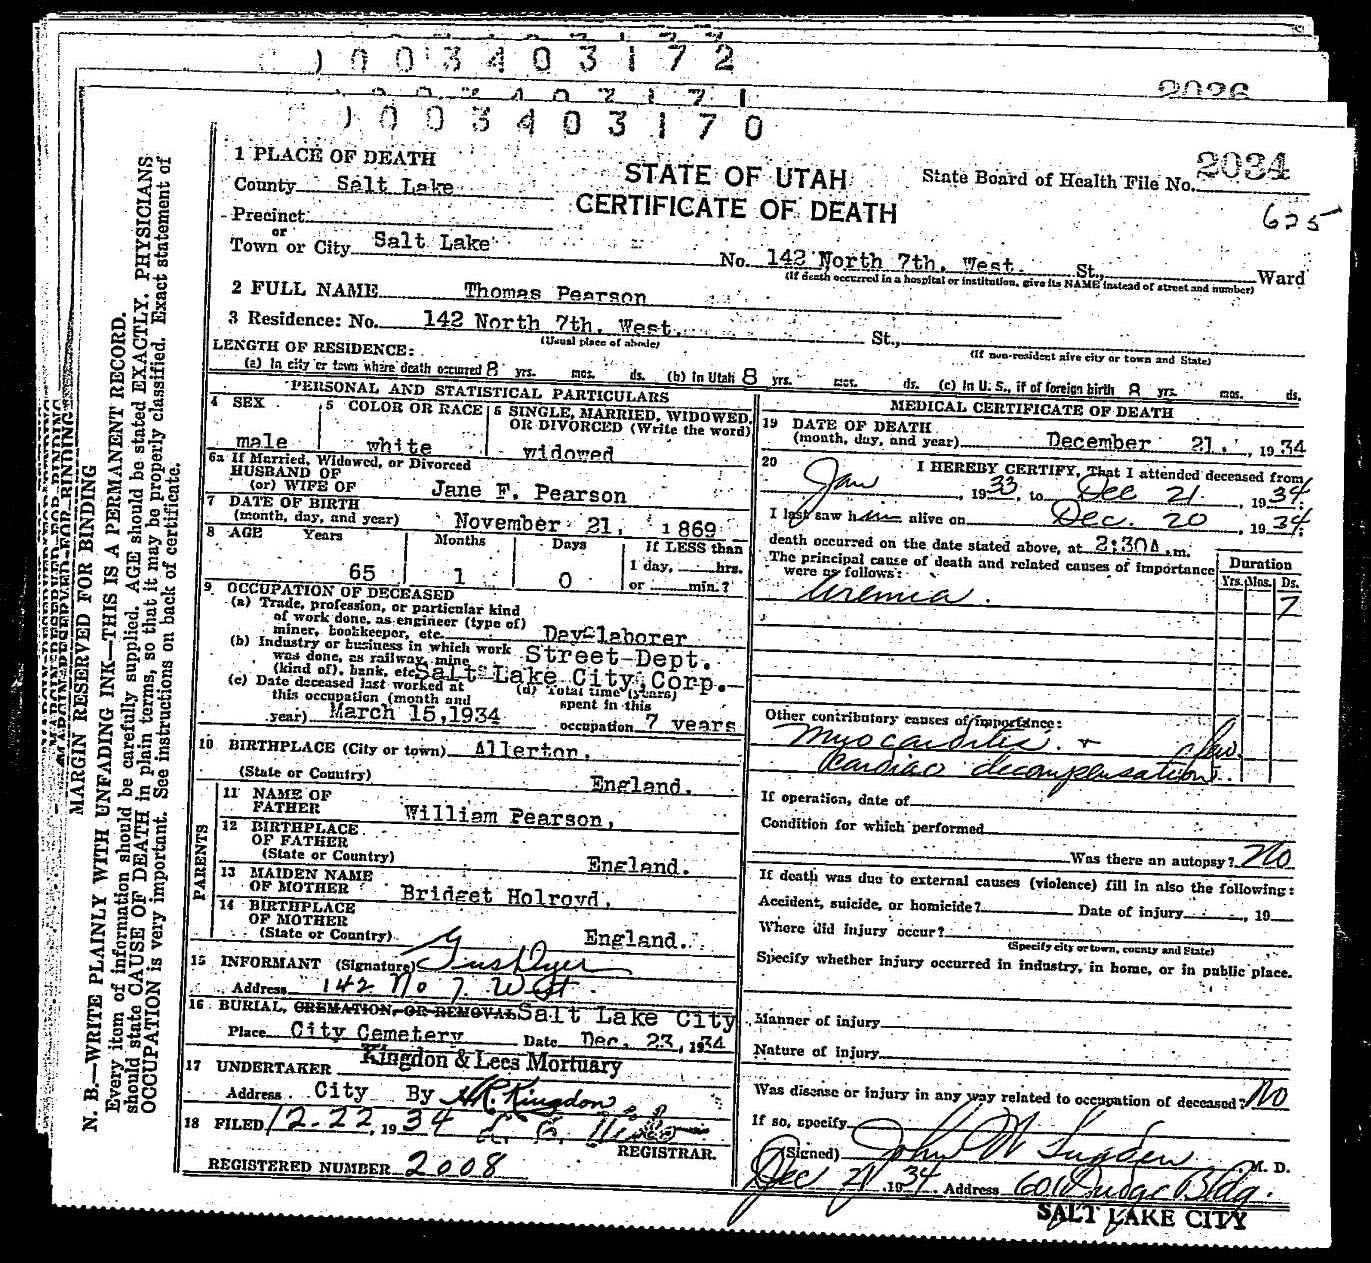 0 0 3 4 0 3 1 7 2
2026
0 0 3 4 0 3 1 7 0
2034
625
STATE OF UTAH
CERTIFICATE OF DEATH
State Board of Health File No.
1 PLACE OF DEATH
County Salt Lake
Precinct
or
Town or City Salt Lake
No. 142 North 7th. West. St., Ward
(If death occurred in a hospital or institution, give its NAME instead of street and number)
2 FULL NAME Thomas Pearson
3 Residence: No. 142 North 7th. West. St.,
(Usual place of abode) (If non-resident give city or town and State)
LENGTH OF RESIDENCE:
(a) In city or town where death occurred 8 yrs. mos. ds. (b) In Utah 8 yrs. mos. ds. (c) In U. S., if of foreign birth 8 yrs. mos. ds.
PERSONAL AND STATISTICAL PARTICULARS
4 SEX male
5 COLOR OR RACE white
6 SINGLE, MARRIED, WIDOWED, OR DIVORCED (Write the word) widowed
6a If Married, Widowed, or Divorced
HUSBAND OF
(or) WIFE OF Jane F. Pearson
7 DATE OF BIRTH
(month, day, and year) November 21, 1869
8 AGE Years Months Days If LESS than
1 day, hrs.
65 1 0 or min.?
9 OCCUPATION OF DECEASED
(a) Trade, profession, or particular kind
of work done, as engineer (type of)
miner, bookkeeper, etc. Day-laborer
(b) Industry or business in which work
was done, as railway, mine
(kind of), bank, etc. Street-Dept.
Salt Lake City Corp.
(c) Date deceased last worked at
this occupation (month and
year) March 15,1934
(d) Total time (years)
spent in this
occupation 7 years
10 BIRTHPLACE (City or town) Allerton,
(State or Country) England.
PARENTS
11 NAME OF
FATHER William Pearson,
12 BIRTHPLACE
OF FATHER
(State or Country) England.
13 MAIDEN NAME
OF MOTHER Bridget Holroyd,
14 BIRTHPLACE
OF MOTHER
(State or Country) England.
15 INFORMANT (Signature) Gus Dyer
Address 142 No 7. West.
16 BURIAL, CREMATION, OR REMOVAL Salt Lake City
Place City Cemetery Date Dec. 23, 1934
17 UNDERTAKER Kingdon & Lees Mortuary
Address City By H.R. Kingdon
18 FILED 12.22, 1934
REGISTRAR.
REGISTERED NUMBER 2008
MEDICAL CERTIFICATE OF DEATH
19 DATE OF DEATH
(month, day, and year) December 21., 1934
20 I HEREBY CERTIFY, That I attended deceased from
Jan, 1933, to Dec 21, 1934
I last saw him alive on Dec. 20, 1934.
death occurred on the date stated above, at 2:30A.m.
The principal cause of death and related causes of importance
were as follows:
Duration
Yrs. Mos. Ds.
Uremia. 7
Other contributory causes of importance:
Myocarditis. +
Cardiac decompensation
If operation, date of
Condition for which performed
Was there an autopsy? No
If death was due to external causes (violence) fill in also the following:
Accident, suicide, or homicide? Date of injury , 19
Where did injury occur?
(Specify city or town, county and State)
Specify whether injury occurred in industry, in home, or in public place.
Manner of injury
Nature of injury
Was disease or injury in any way related to occupation of deceased? No
If so, specify
(Signed) John M Sugden M. D.
Dec 21 1934 Address 601 Judge Bldg.
SALT LAKE CITY
MARGIN RESERVED FOR BINDING
N. B.—WRITE PLAINLY WITH UNFADING INK—THIS IS A PERMANENT RECORD.
Every item of information should be carefully supplied. AGE should be stated EXACTLY. PHYSICIANS
should state CAUSE OF DEATH in plain terms, so that it may be properly classified. Exact statement of
OCCUPATION is very important. See instructions on back of certificate.